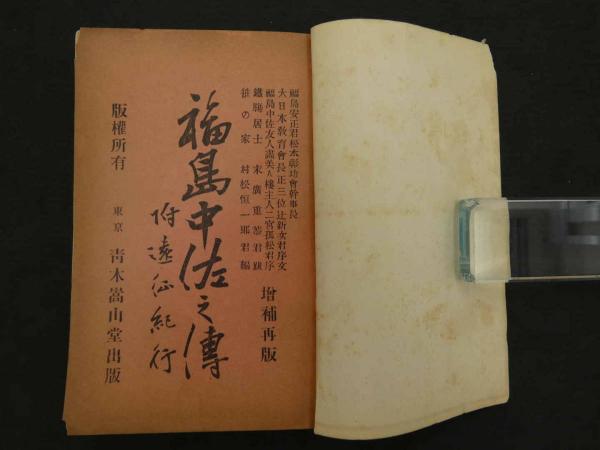 福島安正君松本彰功會幹事長
大日本教育會長正三位辻新次君序文
福島中佐友人 樓主人二宮孤松君序
鐵膓居士 末廣重恭君跋
笹の家 村松恒一郎君編
増補再版
福島中佐之傳
附遠征紀行
版權所有
東京 青木嵩山堂出版